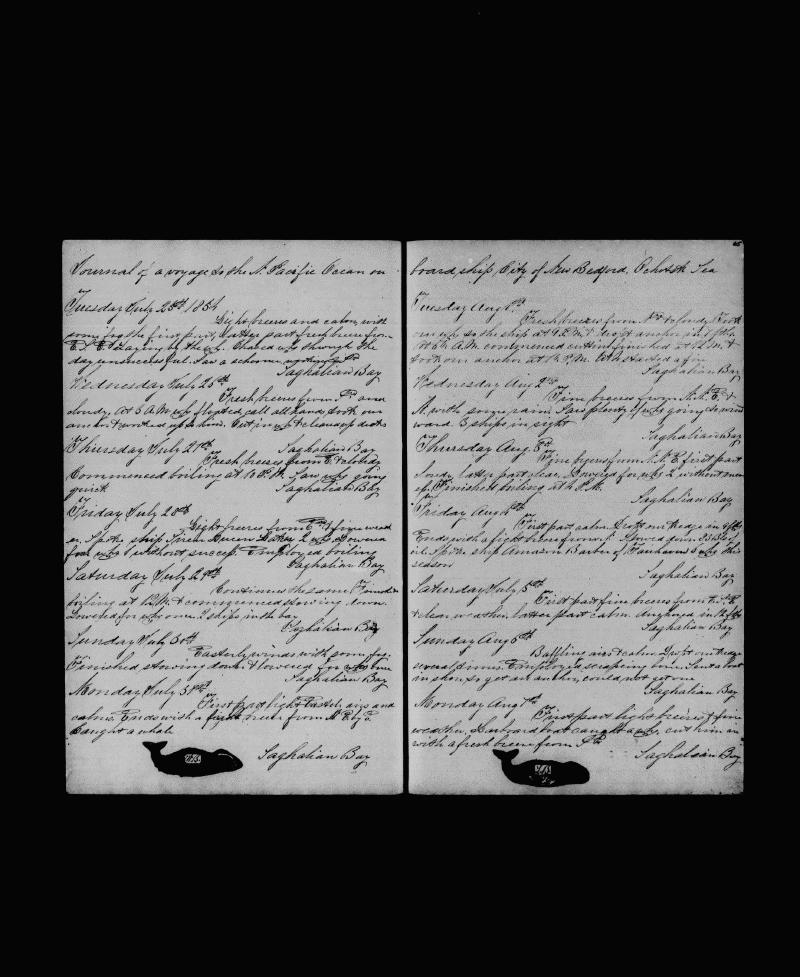 Journal of a voyage to the N. Pacific Ocean on
Tuesday July 25th 1854
Light breezes and calm, with
some fog the first part, latter part fresh breeze from
day unsuccessful. Saw a schooner
Saghalian Bay
Wednesday July 26th
Fresh breezes from and
cloudy. At 5 A.M. whale floated, call all hands, took our
anchor & worked up to him. Cut in whale & cleared decks
Thursday July 27th Saghalian Bay
Fresh breezes from E. & cloudy
Commenced boiling at P.M. Saw whales going
quick Saghalian Bay
Friday July 28th
Light breezes from & fine weath
er. Spoke ship Lowered
for without success. Employed boiling
Saghalian Bay
Saturday July 29th
Continues the same. Finished
boiling at 12 M. & commenced stowing down.
Lowered for whales once. 2 ships in the bay
Saghalian Bay
Sunday July 30th
Easterly winds with some fog.
Finished stowing down & lowered for once
Saghalian Bay
Monday July 31st
First part light Easterly airs and
calms. Ends with a fresh breeze from
Caught a whale
Saghalian Bay
board ship City of New Bedford. Ochotsk Sea
Tuesday Aug 1st
Fresh breezes from & cloudy. Took
our whale to the ship at & dropt anchor in
At A.M. commenced cutting finished at &
took our anchor at P.M.
Saghalian Bay
Wednesday Aug 2nd
Fine breezes from N. N. E. &
N. with some rain. Saw plenty of whales going to wind
ward. 5 ships in sight
Saghalian Bay
Thursday Aug. 3rd
Fine breezes from N. N. E. first part
latter part clear. Lowered for whales 2 without succ
ess. Finished boiling at 4 P.M.
Saghalian Bay
Friday Aug 4th
First part calm. Dropt our kedge in
Ends with a light breeze from Stowed down Bbls of
oil. Spoke ship Amazon Barber of Fairhaven 5 whales this
season
Saghalian Bay
Saturday July 5th
First part fine breezes from
& clear weather, latter part calm. Anchored in
Saghalian Bay
Sunday Aug 6th
Baffling airs & calm. Dropt our kedge
several times. Employed scraping bone. Sent a boat
in shore to get an anchor, could not get one
Saghalian Bay
Monday Aug 7th
First part light breezes & fine
weather. Larboard boat caught a whale, cut him in
with a fresh breeze from
Saghalian Bay